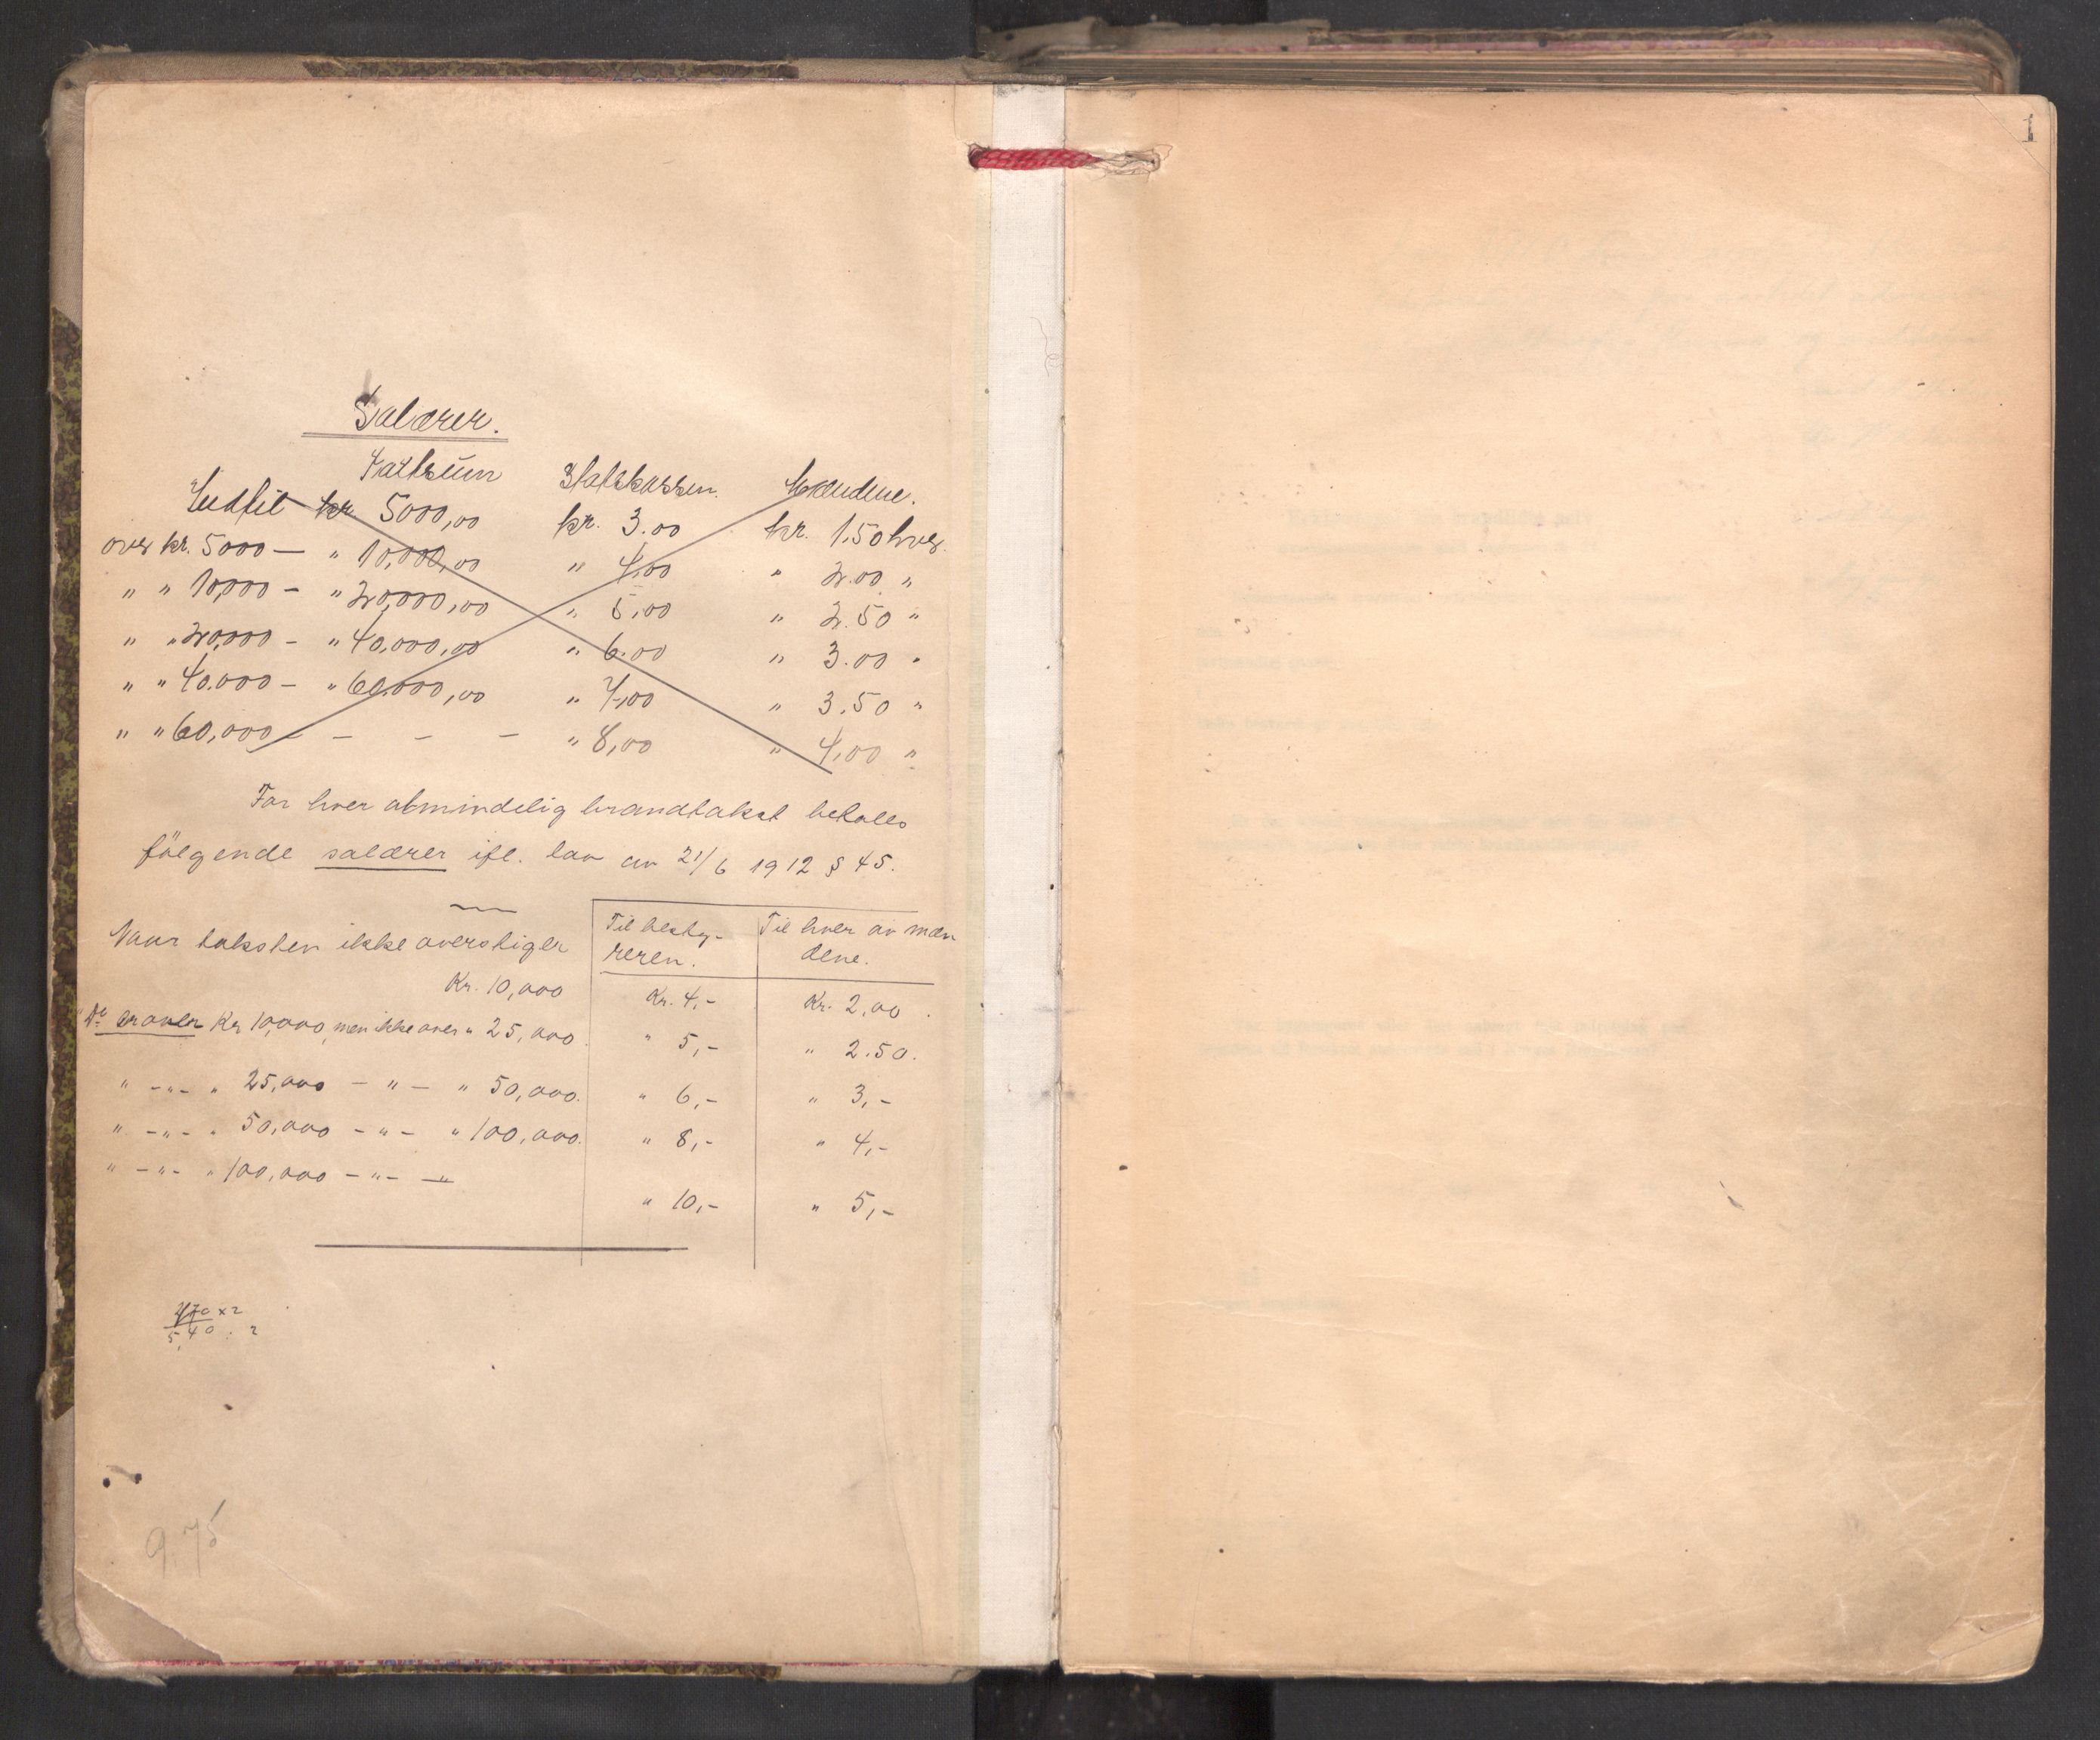 Salærer.
Taktsum Statskassen. Mændene.
Indtil kr. 5000,00 kr. 3.00 kr. 1.50 hver.
over kr. 5000 — " 10,000,00 " 4,00 " 2.00 "
" " 10,000 — " 20,000,00 " 5,00 " 2.50 "
" " 20,000 — " 40,000,00 " 6.00 " 3.00 "
" " 40.000 — " 60.000,00 " 7,00 " 3.50 "
" " 60,000 — — — — " 8,00 " 4,00 "
For hver almindelig brandtakst betales
følgende salærer ifl. lov av 21/6 1912 § 45.
Naar taksten ikke overstiger Til besty- Til hver av mæn
reren. dene.
Kr. 10,000 Kr. 4,- Kr. 2,00.
er over Kr 10,000, men ikke over " 25,000 " 5,- " 2.50.
" -"- " 25,000 - " - " 50,000. " 6,- " 3,-
" -"- " 50,000 - " - " 100,000. " 8,- " 4,-
" -"- " 100,000 - " - " " 10,- " 5,-
x 2
5,40 : 2
9.75
1